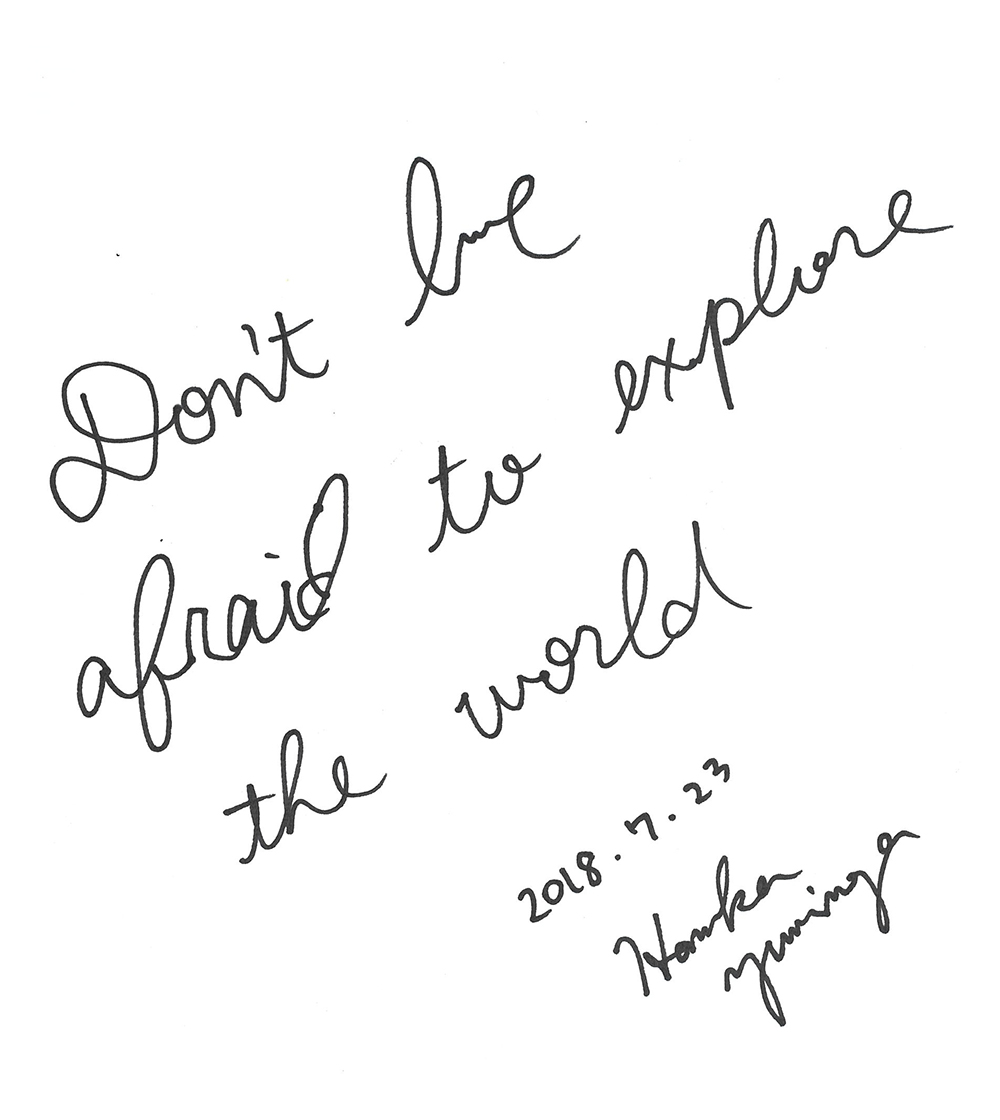 Don't be
afraid to explore
the world
2018.7.23